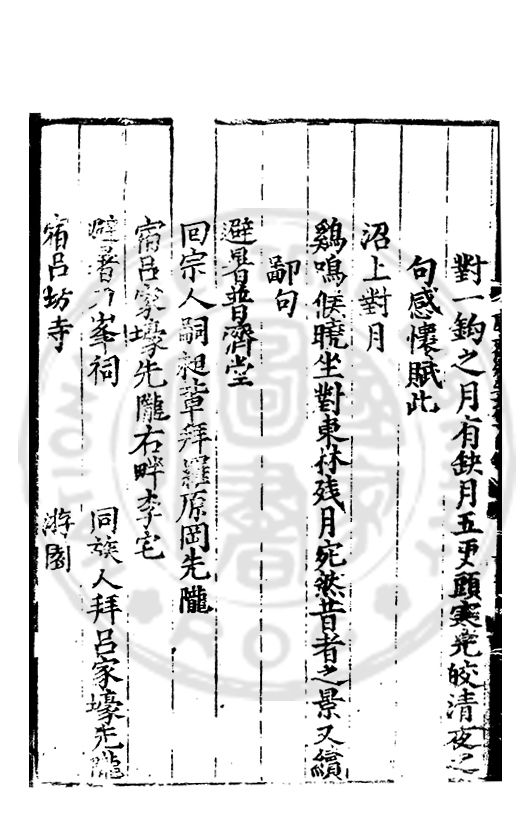 對一鈎之月有缺月五更頭寒光皎清夜之
句感懷賦此
沼上對月
鷄鳴候曉坐對東林残月宛然昔者之景又續
鄙句
避暑普濟堂
同宗人嗣昶輩拜羅原岡先隴
宿呂家壕先隴右畔李宅
避暑 峯祠 同族人拜呂家壕先隴
宿呂坊寺 游園